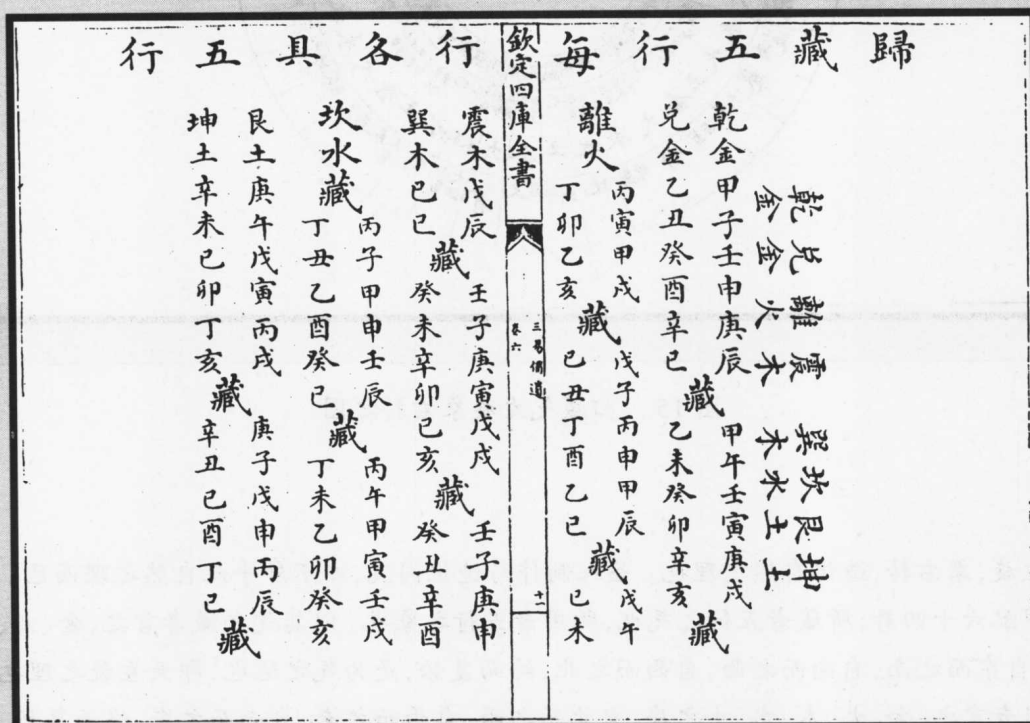 歸藏五行每行各具五行
乾兌離震巽坎艮坤
金金火木木水土土
乾金甲子壬申庚辰藏甲午壬寅庚戌藏
兌金乙丑癸酉辛巳藏乙未癸卯辛亥藏
離火丙寅甲戌藏戊子丙申甲辰藏戊午
離火丁卯乙亥藏己丑丁酉乙巳藏己未
欽定四庫全書
三易備遺
卷六
十一
震木戊辰藏壬子庚寅戊戌藏壬子庚申
巽木己巳藏癸未辛卯己亥藏癸丑辛酉
坎水藏丙子甲申壬辰藏丙午甲寅壬戌
丁丑乙酉癸巳藏丁未乙卯癸亥
艮土庚午戊寅丙戌藏庚子戊申丙辰藏
坤土辛未己卯丁亥藏辛丑己酉丁巳藏